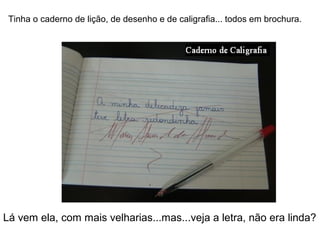 Tinha o caderno de lição, de desenho e de caligrafia... todos em brochura.
Caderno de Caligrafia
A minha delicadeza jamais
teve letra redondinha
Lá vem ela, com mais velharias...mas...veja a letra, não era linda?